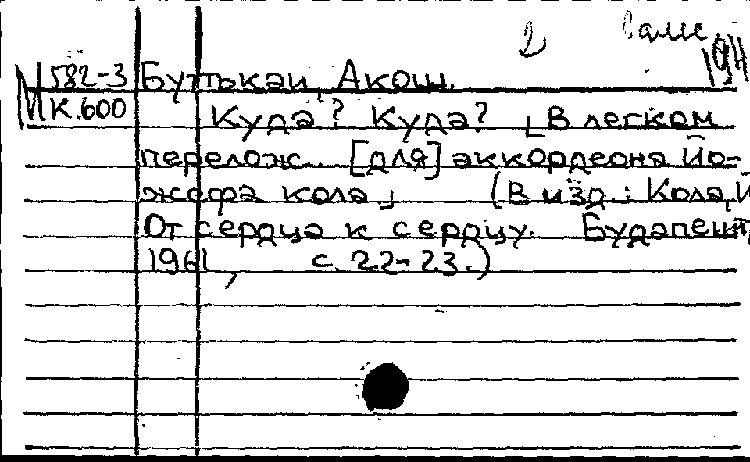 2
М 582-3 Буттькаи, Акош.
К.600 Куда? Куда? [В легком
перелож. [для] аккордеона Йо-
жефа кола] (В изд.: Кола, Й
От сердца к сердцу. Будапешт,
1961, с. 22-23.)